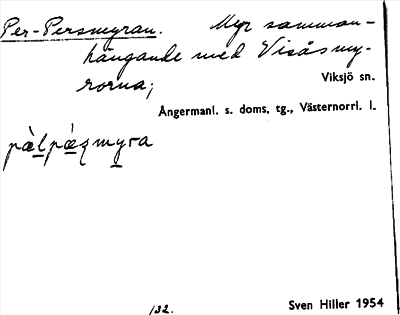 Per-Persmyran. Myr samman-
hängande med Visåsmy-
rorna;
Viksjö sn.
Ångermanl. s. doms. tg., Västernorrl. l.
pæ̀lpæ̀ʂmyra
132.
Sven Hiller 1954